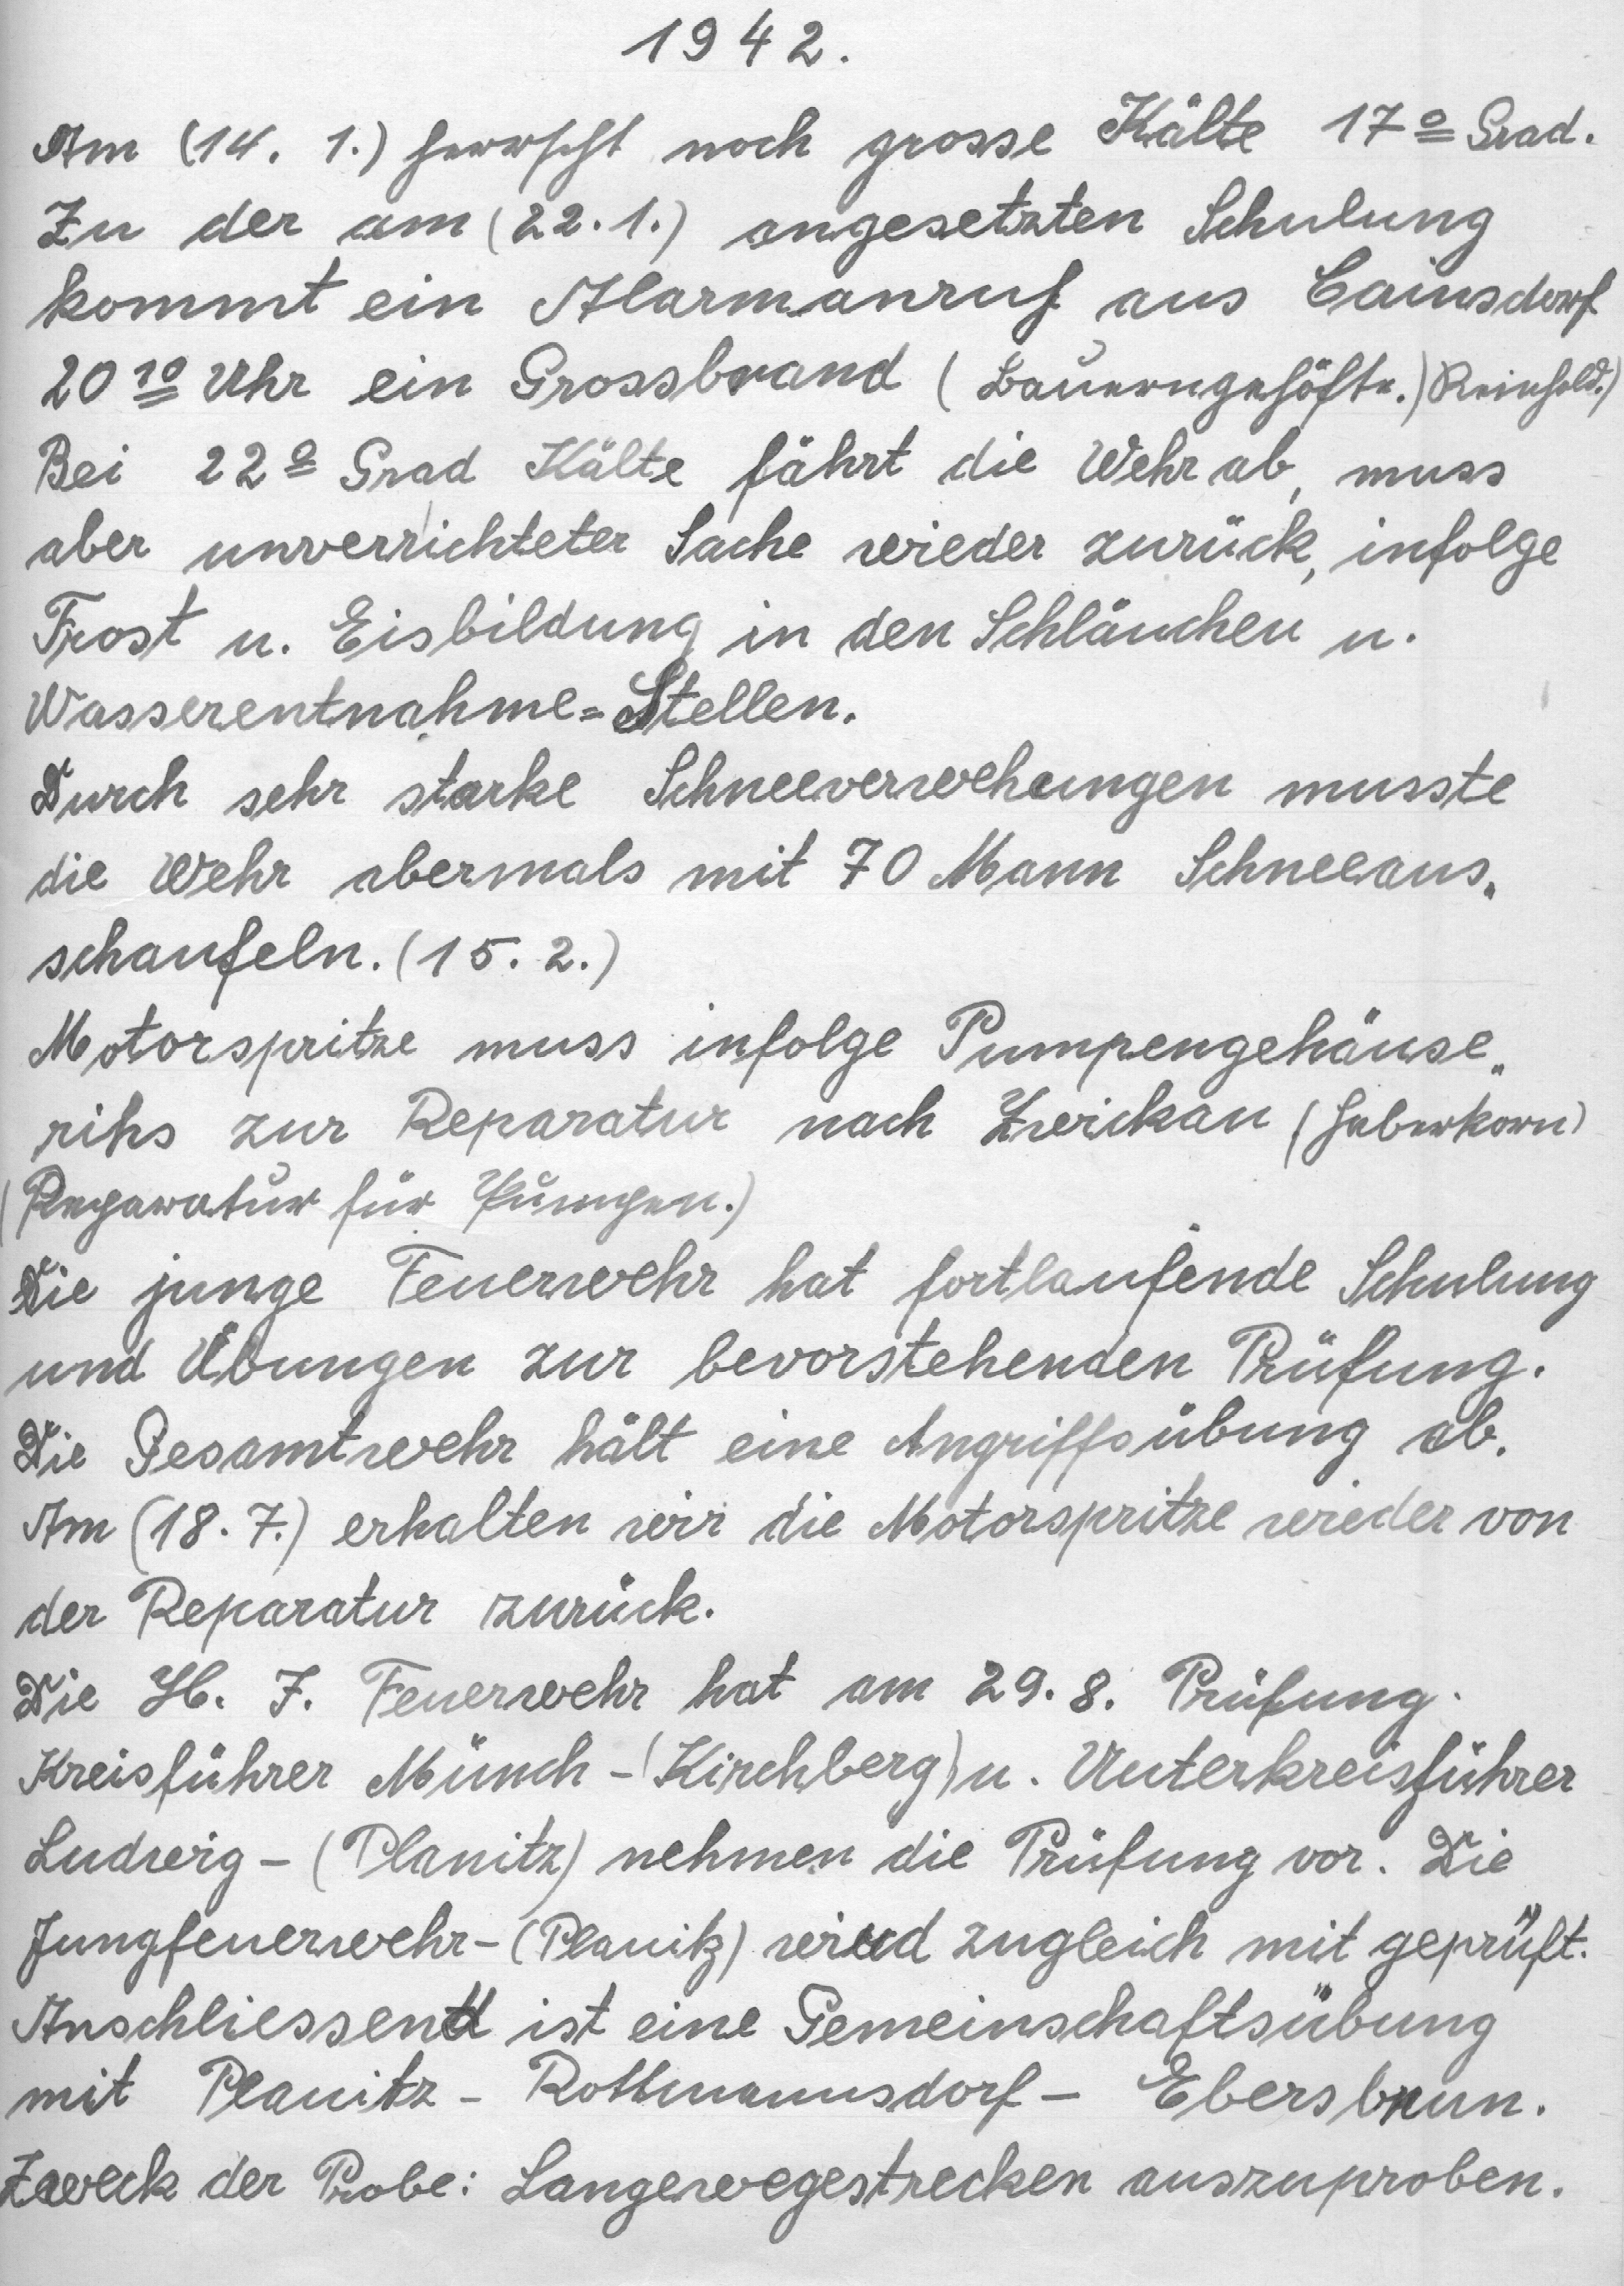 1942.
Am (14. 1.) herrscht noch grosse Kälte 17º Grad.
Zu der am (22.1.) angesetzten Schulung
kommt ein Alarmanruf aus Cainsdorf
20 10 Uhr ein Grossbrand (Bauerngehöfte.) Reinhold.)
Bei 22º Grad Kälte fährt die Wehr ab, muss
aber unverrichteter Sache wieder zurück, infolge
Frost u. Eisbildung in den Schläuchen u.
Wasserentnahme=Stellen.
Durch sehr starke Schneeverwehungen musste
die Wehr abermals mit 70 Mann Schneeaus„
schaufeln. (15. 2.)
Motorspritze muss infolge Pumpengehäuse„
rihs zur Reparatur nach Zwickau (Haberkorn)
(Reparatur für Pumpen.)
Die junge Feuerwehr hat fortlaufende Schulung
und Übungen zur bevorstehenden Prüfung.
Die Gesamtwehr hält eine Angriffsübung ab.
Am (18. 7.) erhalten wir die Motorspritze wieder von
der Reparatur zurück.
Die H. J. Feuerwehr hat am 29. 8. Prüfung.
Kreisführer Münch - (Kirchberg) u. Unterkreisführer
Ludwig - (Planitz) nehmen die Prüfung vor. Die
Jungfeuerwehr - (Planitz) wird zugleich mit geprüft.
Anschliessend ist eine Gemeinschaftsübung
mit Planitz - Rottmannsdorf - Ebersbrun.
Zweck der Probe: Langewegestrecken auszuproben.